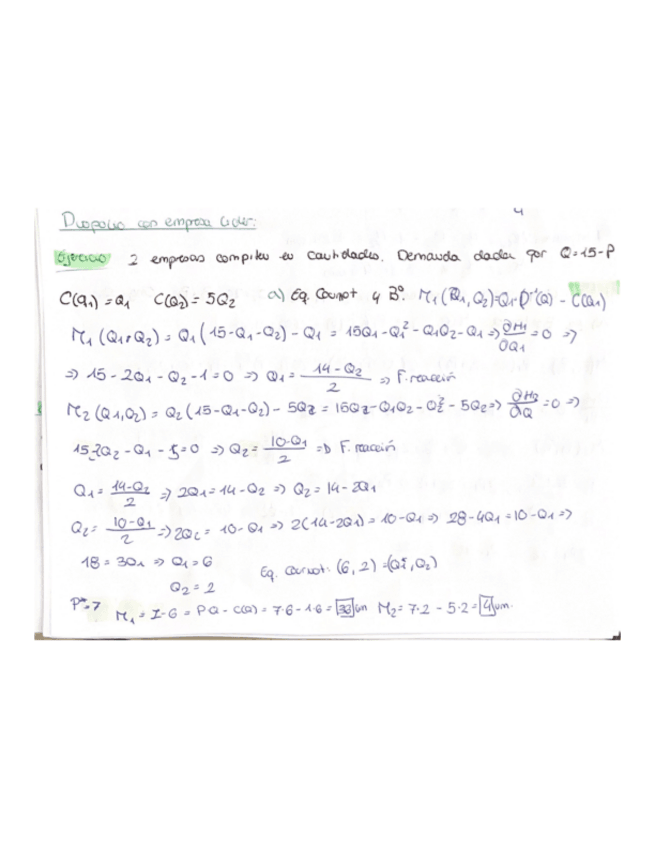 Duopolio con empresa lider: 4
Ejercicio 2 empresas compiten en cantidades. Demanda dada por Q=15-P
C(Q₁)=Q₁ C(Q₂)=5Q₂ a) Eq. Cournot y Bº. Π₁(Q₁,Q₂)=Q₁·P⁻¹(Q) - C(Q₁)
Π₁(Q₁,Q₂) = Q₁(15-Q₁-Q₂) - Q₁ = 15Q₁-Q₁²-Q₁Q₂-Q₁ ⇒ ∂Π₁/∂Q₁ = 0 ⇒
⇒ 15 - 2Q₁ - Q₂ - 1 = 0 ⇒ Q₁ = 14-Q₂/2 ⇒ F. reacción
Π₂(Q₁,Q₂) = Q₂(15-Q₁-Q₂) - 5Q₂ = 15Q₂-Q₁Q₂-Q₂²-5Q₂ ⇒ ∂Π₂/∂Q = 0 ⇒
15-2Q₂ - Q₁ - 5=0 ⇒ Q₂ = 10-Q₁/2 ⇒ F. reacción
Q₁ = 14-Q₂/2 ⇒ 2Q₁=14-Q₂ ⇒ Q₂ = 14-2Q₁
Q₂ = 10-Q₁/2 ⇒ 2Q₂ = 10-Q₁ ⇒ 2(14-2Q₁) = 10-Q₁ ⇒ 28-4Q₁=10-Q₁ ⇒
18 = 3Q₁ ⇒ Q₁=6 Eq. Cournot: (6,2) = (Q₁*, Q₂)
Q₂ = 2
P*=7 Π₁ = I-G = PQ - C(Q) = 7·6-1·6 = 36 um Π₂ = 7·2 - 5·2 = 4 um.